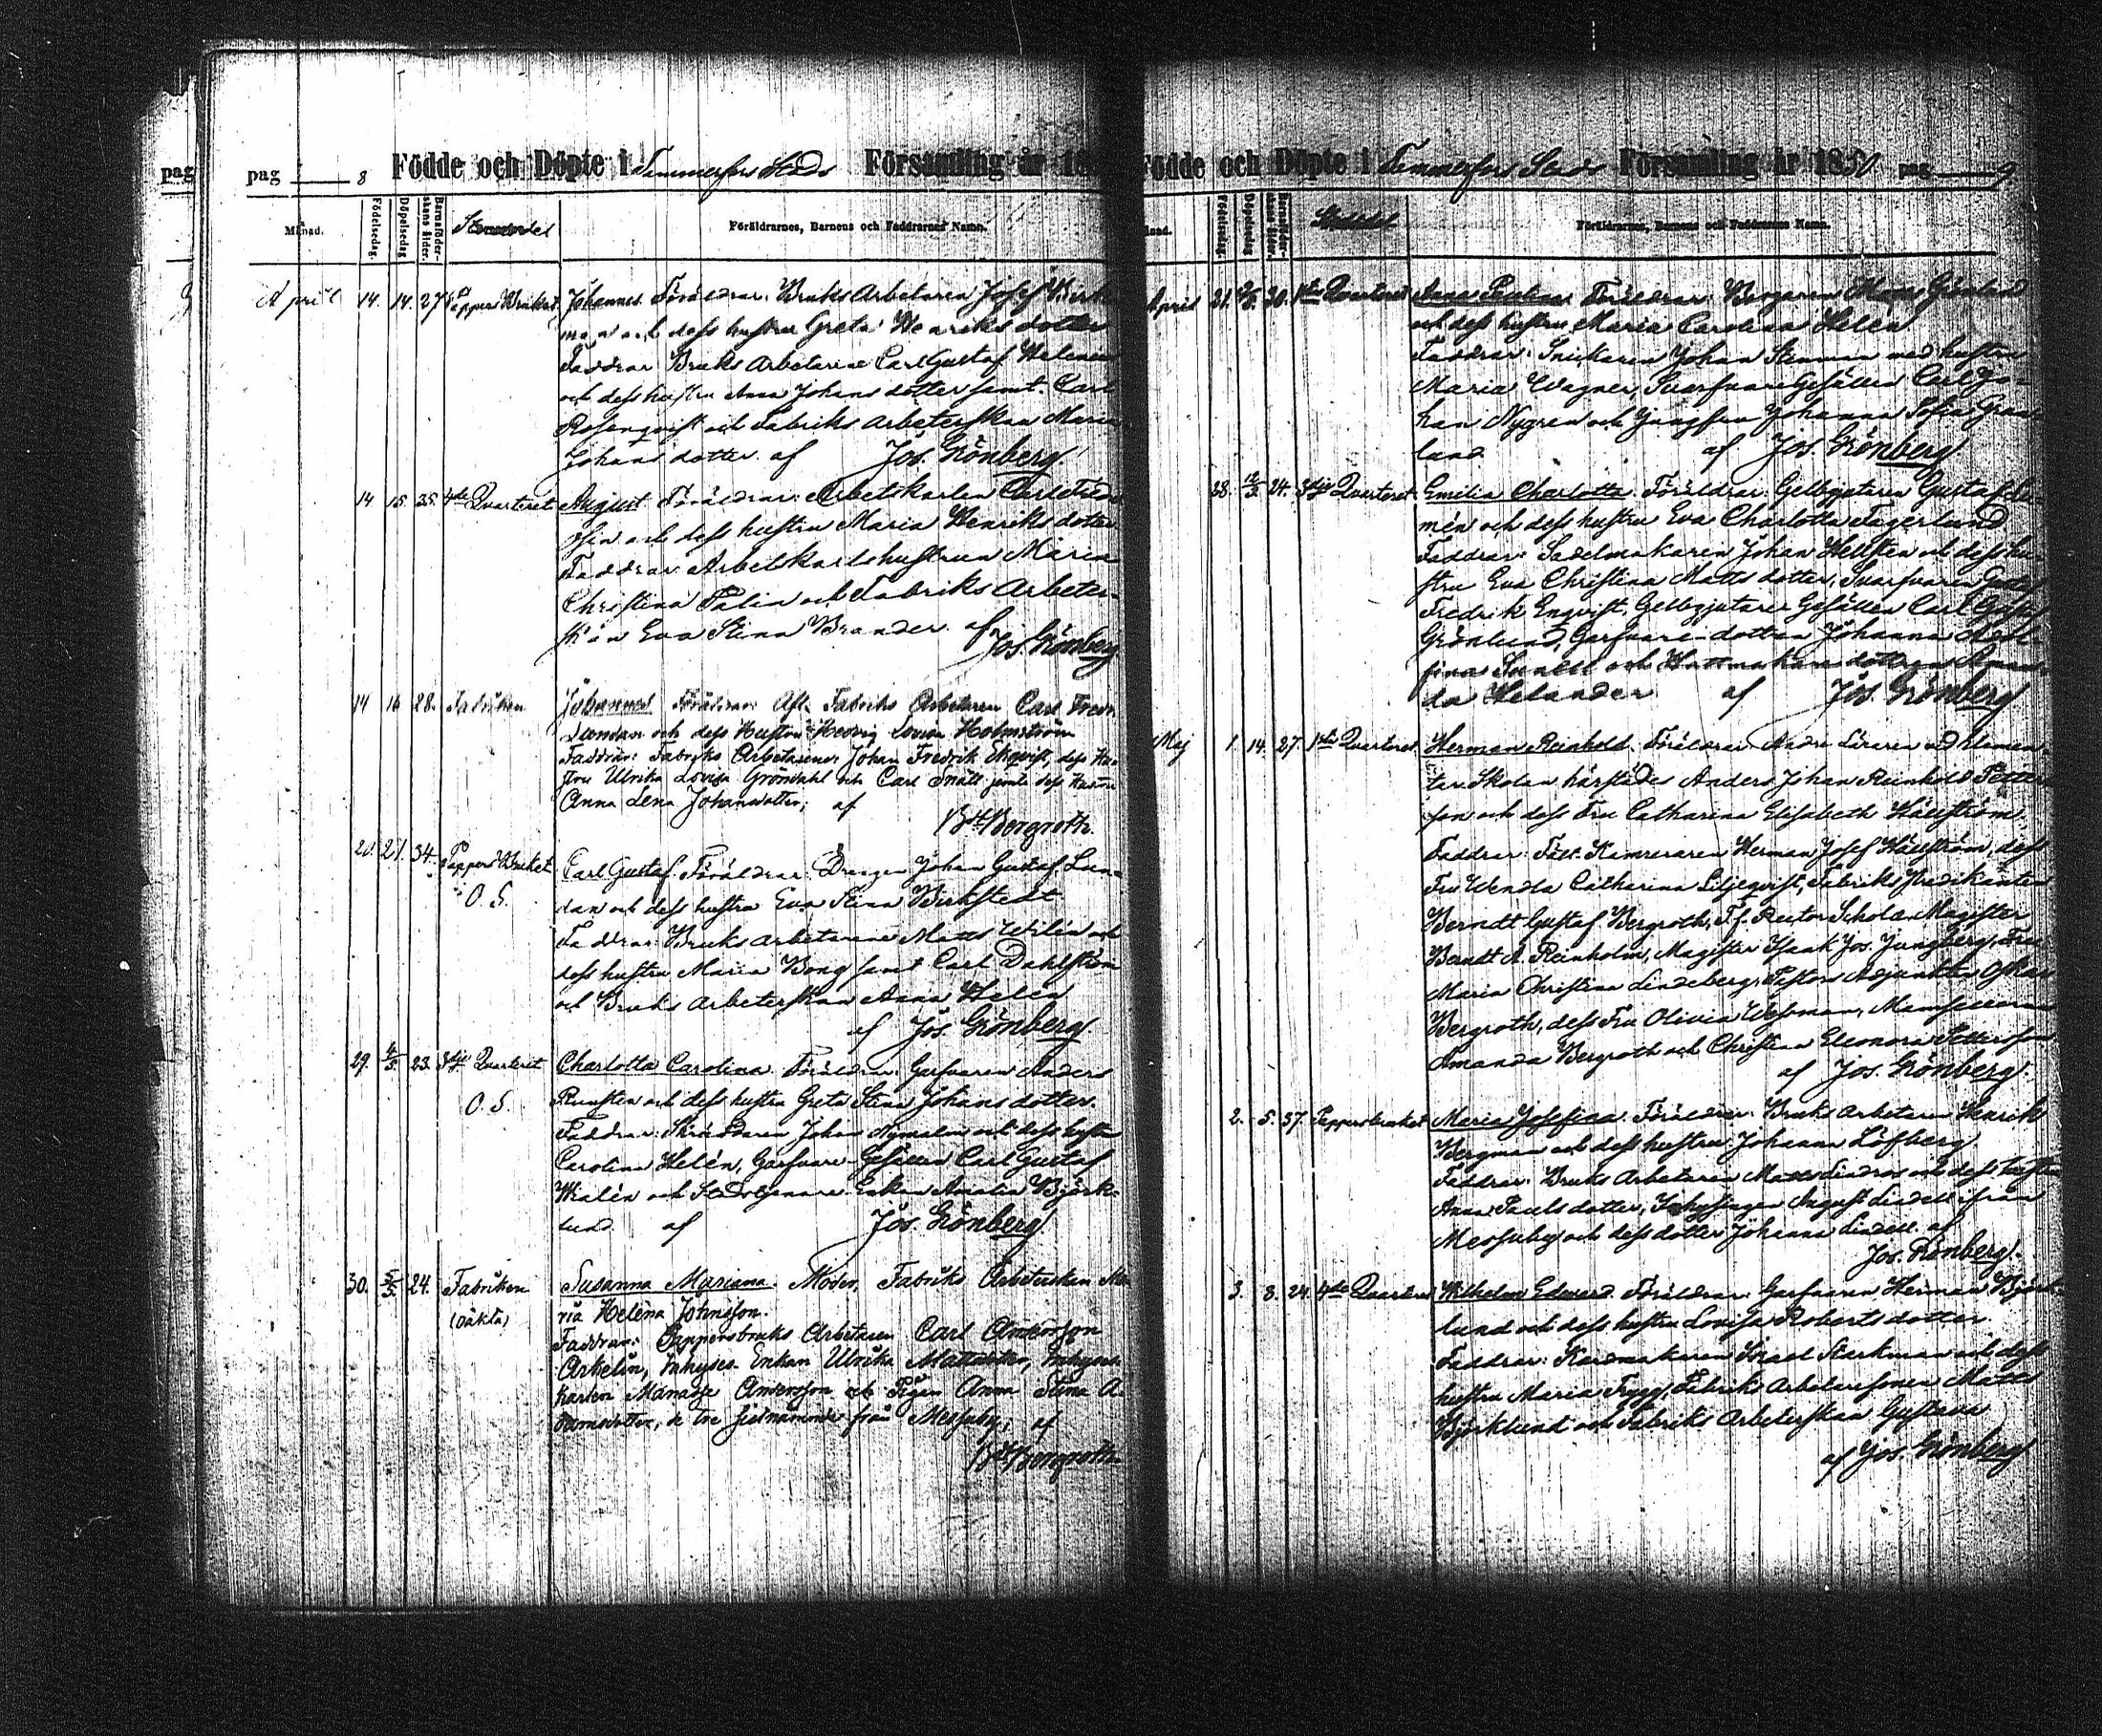 pag
pag 8 Födde och Döpte i Tammerfors Stads Församling år 18
Månad. Födelsedag. Döpelsedag Barnaföderskans ålder. Föräldrarnes, Barnens och Faddrarnes Namn.
April 14. 14. 27 Pappers Bruket Johannes. Föräldrar: Bruks Arbetaren Josef Birk
man och dess hustru Greta Henriksdotter
Faddrar: Bruks Arbetarne Carl Gustaf Helenius
och dess hustru Anna Johansdotter samt Carl
Rosenqvist och Fabriks Arbeterskan Maria
Johansdotter. af Jos. Grönberg.
14 15. 35. 4de Qvarteret August. Föräldrar: Arbetskarlen Carl
och dess hustru Maria Henriksdotter
Faddrar: Arbetskarlshustrun Maria
Christina Palin och Fabriks Arbeter-
skan Eva Stina Brander. af
Jos. Grönberg
14 16 28. Fabriken Johannes Föräldrar: Afl. Fabriks Arbetaren Carl Fredr.
Lundan och dess Hustru Hedvig Lovisa Holmström
Faddrar: Fabriks Arbetarene: Johan Fredrik Ekqvist, dess Hu-
stru Ulrika Lovisa Gröndahl och Carl Snäll jemte dess Hustru
Anna Lena Johansdotter; af
Bt Bergroth.
21. 21. 34. Pappers Bruket Carl Gustaf. Föräldrar: Drengen Johan Gustaf Lun-
O. S. dan och dess hustru Eva Stina Birkstedt
Faddrar: Bruks arbetarene Matts Wilén och
dess hustru Maria Bong samt Carl Dahlström
och Bruks arbeterskan Anna Helén
af Jos. Grönberg.
29. 4/5 23. 3dje Qvarteret Charlotta Carolina. Föräldrar: Garfvaren Anders
O. S. Runsten och dess hustru Greta Stina Johansdotter.
Faddrar: Skräddaren Johan Nymalm och dess hustru
Carolina Helén, Garfvare-Gesällen Carl Gustaf
Wialén och Stadstjenare Enkan Amalia Björk-
lund. af Jos. Grönberg.
30. 5/5 24. Fabriken Susanna Mariana. Moder, Fabriks Arbeterskan Ma-
(oäkta) ria Helena Johnsson.
Faddrar: Pappersbruks Arbetaren Carl Andersson
Arkelin, Inhyses Enkan Ulrika Mattsdotter, Inhyses
karlen Manasse Andersson och Pigan Anna Stina A-
damsdotter, de tre sistnämnde från Messuby; af
Bt Bergroth
Födde och Döpte i Tammerfors Stads Församling år 1850 pag 9.
Födelsedag. Döpelsedag Föräldrarnes, Barnens och Faddrarnes Namn.
April 21. 30. 1sta Qvarteret Anna Paulina. Föräldrar: Borgaren Grönlund
och dess hustru Maria Carolina Helén
Faddrar: Snickaren Johan Stenman med hustru
Maria Wagner, Svarfvare Gesällen Carl Jo-
han Nygren och Jungfru Johanna Sofia Grön-
lund af Jos. Grönberg
28. 12/5 24. 3dje Qvarteret. Emilia Charlotta. Föräldrar: Gelbgjutaren Gustaf
mén och dess hustru Eva Charlotta Fagerlund
Faddrar: Sadelmakaren Johan Hellsten och dess hu-
stru Eva Christina Mattsdotter, Svarfvaren Gustaf
Fredrik Enqvist, Gelbgjutare Gesällen Carl Gust.
Grönlund, Garfvare-dottren Johanna
fina Sunell och Hattmakare dottren Aman-
da Helander af Jos. Grönberg
Maj 1. 14. 27. 1sta Qvarteret. Herman Reinhold. Föräldrar: Andre Läraren vid Elemen-
tar Skolan härstädes Anders Johan Reinhold Petters-
son och dess Fru Catharina Elisabeth Hällström
Faddrar: Fält-Kamreraren Herman Josef Hällström, dess
Fru Wendla Catharina Liljeqvist, Fabriks Predikanten
Berndt Gustaf Bergroth, T.f. Rector Scholae Magister
Berndt A. Reinholm, Magister Isaak Jos. Jungberg, Fru
Maria Christina Lindeberg, Pastors Adjunkten Oskar
Bergroth, dess Fru Olivia Wessman, Mamsellerna
Amanda Bergroth och Christina Eleonora Pettersson
af Jos. Grönberg.
2. 5. 37. Pappersbruket Maria Josefina. Föräldrar: Bruks Arbetaren Henrik
Bergman och dess hustru Johanna Löfberg
Faddrar: Bruks Arbetaren Matts Lindros och dess hustru
Anna Paulsdotter, Inhysingen August Lindell ifrån
Messuby och dess dotter Johanna Lindell. af
Jos. Grönberg.
3. 8. 24. 4de Qvarteret Wilhelm Edvard. Föräldrar: Garfvaren Herman Björk-
lund och dess hustru Lovisa Robertsdotter.
Faddrar: Kardmakaren Israel Starkman och dess
hustru Maria Trygg, Fabriks Arbetaresonen Matts
Björklund och Fabriks Arbeterskan Gustava
af Jos. Grönberg